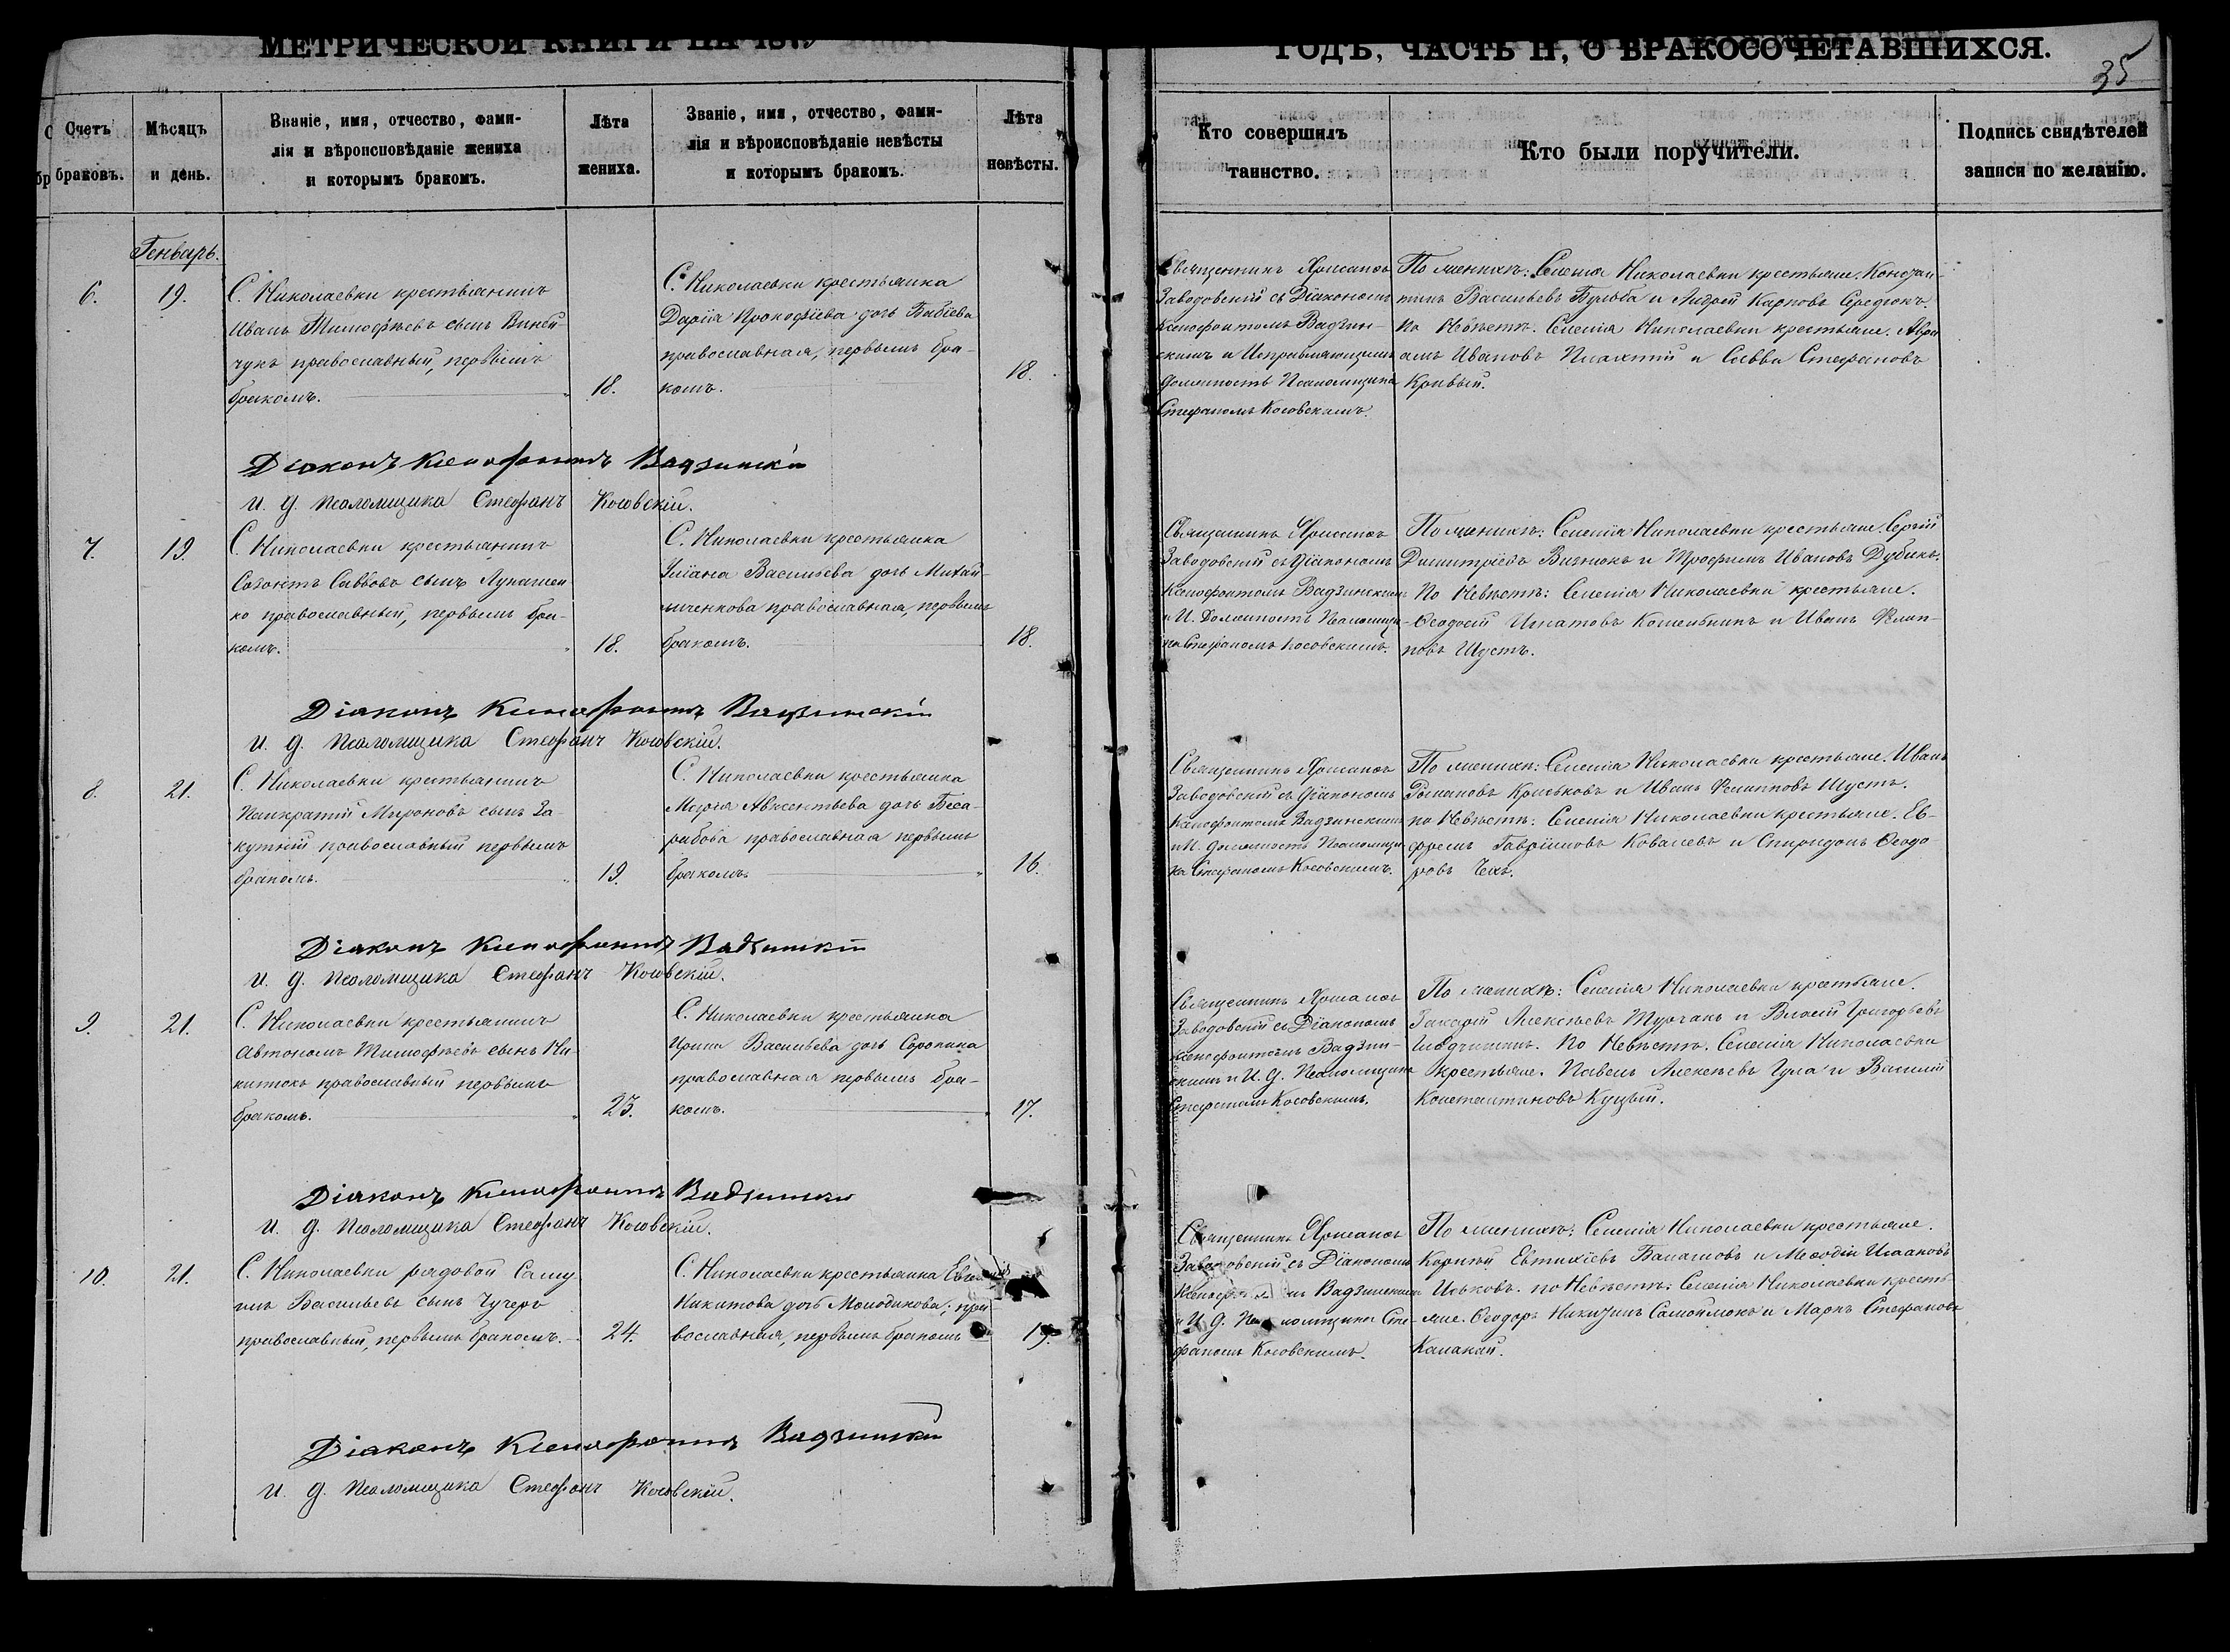 МЕТРИЧЕСКОЙ КНИГИ НА 1879
ГОДЪ, ЧАСТЬ II, О БРАКОСОЧЕТАВШИХСЯ.
35
Счетъ браковъ.
Мѣсяцъ и день.
Званіе, имя, отчество, фами-
лія и вѣроисповѣданіе жениха
и которымъ бракомъ.
Лѣта
жениха.
Званіе, имя, отчество, фами-
лія и вѣроисповѣданіе невѣсты
и которымъ бракомъ.
Лѣта
невѣсты.
Кто совершилъ
таинство.
Кто были поручители.
Подпись свидѣтелей
записи по желанію.
Генварь.
6.
19.
С. Николаевки крестьянинъ
Иванъ Тимофѣевъ сынъ Виней-
чукъ православный, первымъ
бракомъ.
18.
С. Николаевки крестьянка
Дарія Прокофіева дочь Бабіева
православная, первымъ бра-
комъ.
18.
Священникъ Хрисанфъ
Заводовскій съ Діакономъ
Ксенофонтомъ Вадзин-
скимъ и Исправляющимъ
должность Псаломщика
Стефаномъ Косовскимъ.
По женихѣ: Селенія Николаевки крестьяне. Констан-
тинъ Васильевъ Бульба и Андрей Карповъ Середюкъ.
По Невѣстѣ. Селенія Николаевки крестьяне. Авра
амъ Ивановъ Плахтій и Савва Стефановъ
Кривый.
Діаконъ Ксенофонтъ Вадзинскій
И. д. Псаломщика Стефанъ Косовскій.
7.
19.
С. Николаевки крестьянинъ
Созонтъ Саввовъ сынъ Лукашен
ко православный, первымъ бра-
комъ.
18.
С. Николаевки крестьянка
Уліана Васильева дочь Михай-
личенкова православная, первымъ
бракомъ.
18.
Священникъ Хрисанфъ
Заводовскій съ Діакономъ
Ксенофонтомъ Вадзинскимъ
и И. Должность Псаломщи-
ка Стефаномъ Косовскимъ.
По женихѣ: Селенія Николаевки крестьяне. Сергій
Димитріевъ Визнюкъ и Трофимъ Ивановъ Дубикъ.
По Невѣстѣ: Селенія Николаевки крестьяне.
Ѳеодосій Игнатовъ и Иванъ Филип-
повъ Шустъ.
Діаконъ Ксенофонтъ Вадзинскій
И. д. Псаломщика Стефанъ Косовскій.
8.
21.
С. Николаевки крестьянинъ
Панкратій Мироновъ сынъ За-
кутній православный первымъ
бракомъ.
19.
С. Николаевки крестьянка
Марія Авксентьева дочь Беса-
рабова православная первымъ
бракомъ.
16.
Священникъ Хрисанфъ
Заводовскій съ Діакономъ
Ксенофонтомъ Вадзинскимъ
и И. должность Псаломщи
ка Стефаномъ Косовскимъ.
По женихѣ: Селенія Николаевки крестьяне. Иванъ
Романовъ и Иванъ Филипповъ Шустъ.
по Невѣстѣ: Селенія Николаевки крестьяне. Ев-
фремъ Гавріиловъ Ковалевъ и Спиридонъ Ѳеодо-
ровъ Чехъ.
Діаконъ Ксенофонтъ Вадзинскій
И. д. Псаломщика Стефанъ Косовскій.
9.
21.
С. Николаевки крестьянинъ
Автономъ Тимофѣевъ сынъ Ни-
китюкъ православный первымъ
бракомъ.
23.
С. Николаевки крестьянка
Ирина Васильева дочь Сорокина
православная первымъ бра-
комъ.
17.
Священникъ Хрисанфъ
Заводовскій съ Діакономъ
Ксенофонтомъ Вадзин-
скимъ и И. д. Псаломщика
Стефаномъ Косовскимъ.
По женихѣ: Селенія Николаевки крестьяне.
Захарій Алексѣевъ Турчакъ и Власій Григорьевъ
По Невѣстѣ. Селенія Николаевки
крестьяне. Павелъ Алексѣевъ Гула и Василій
Константиновъ Куцый.
Діаконъ Ксенофонтъ Вадзинскій
И. д. Псаломщика Стефанъ Косовскій.
10.
21.
С. Николаевки рядовой Саму
илъ Васильевъ сынъ Чучеръ
православный, первымъ бракомъ.
24.
С. Николаевки крестьянка
Никитова дочь Молодикова; пра
вославная, первымъ бракомъ
19.
Священникъ Хрисанфъ
Заводовскій съ Діакономъ
Вадзинскимъ
и И. д. Псаломщика Сте-
фаномъ Косовскимъ.
По женихѣ: Селенія Николаевки крестьяне.
Корнѣй Евтихіевъ Балашовъ и Меѳодій Исааковъ
Иськовъ. по Невѣстѣ: Селенія Николаевки кресть
яне. Ѳеодоръ Никитинъ Самойлюкъ и Маркъ Стефановъ
Калакай.
Діаконъ Ксенофонтъ Вадзинскій
И. д. Псаломщика Стефанъ Косовскій.